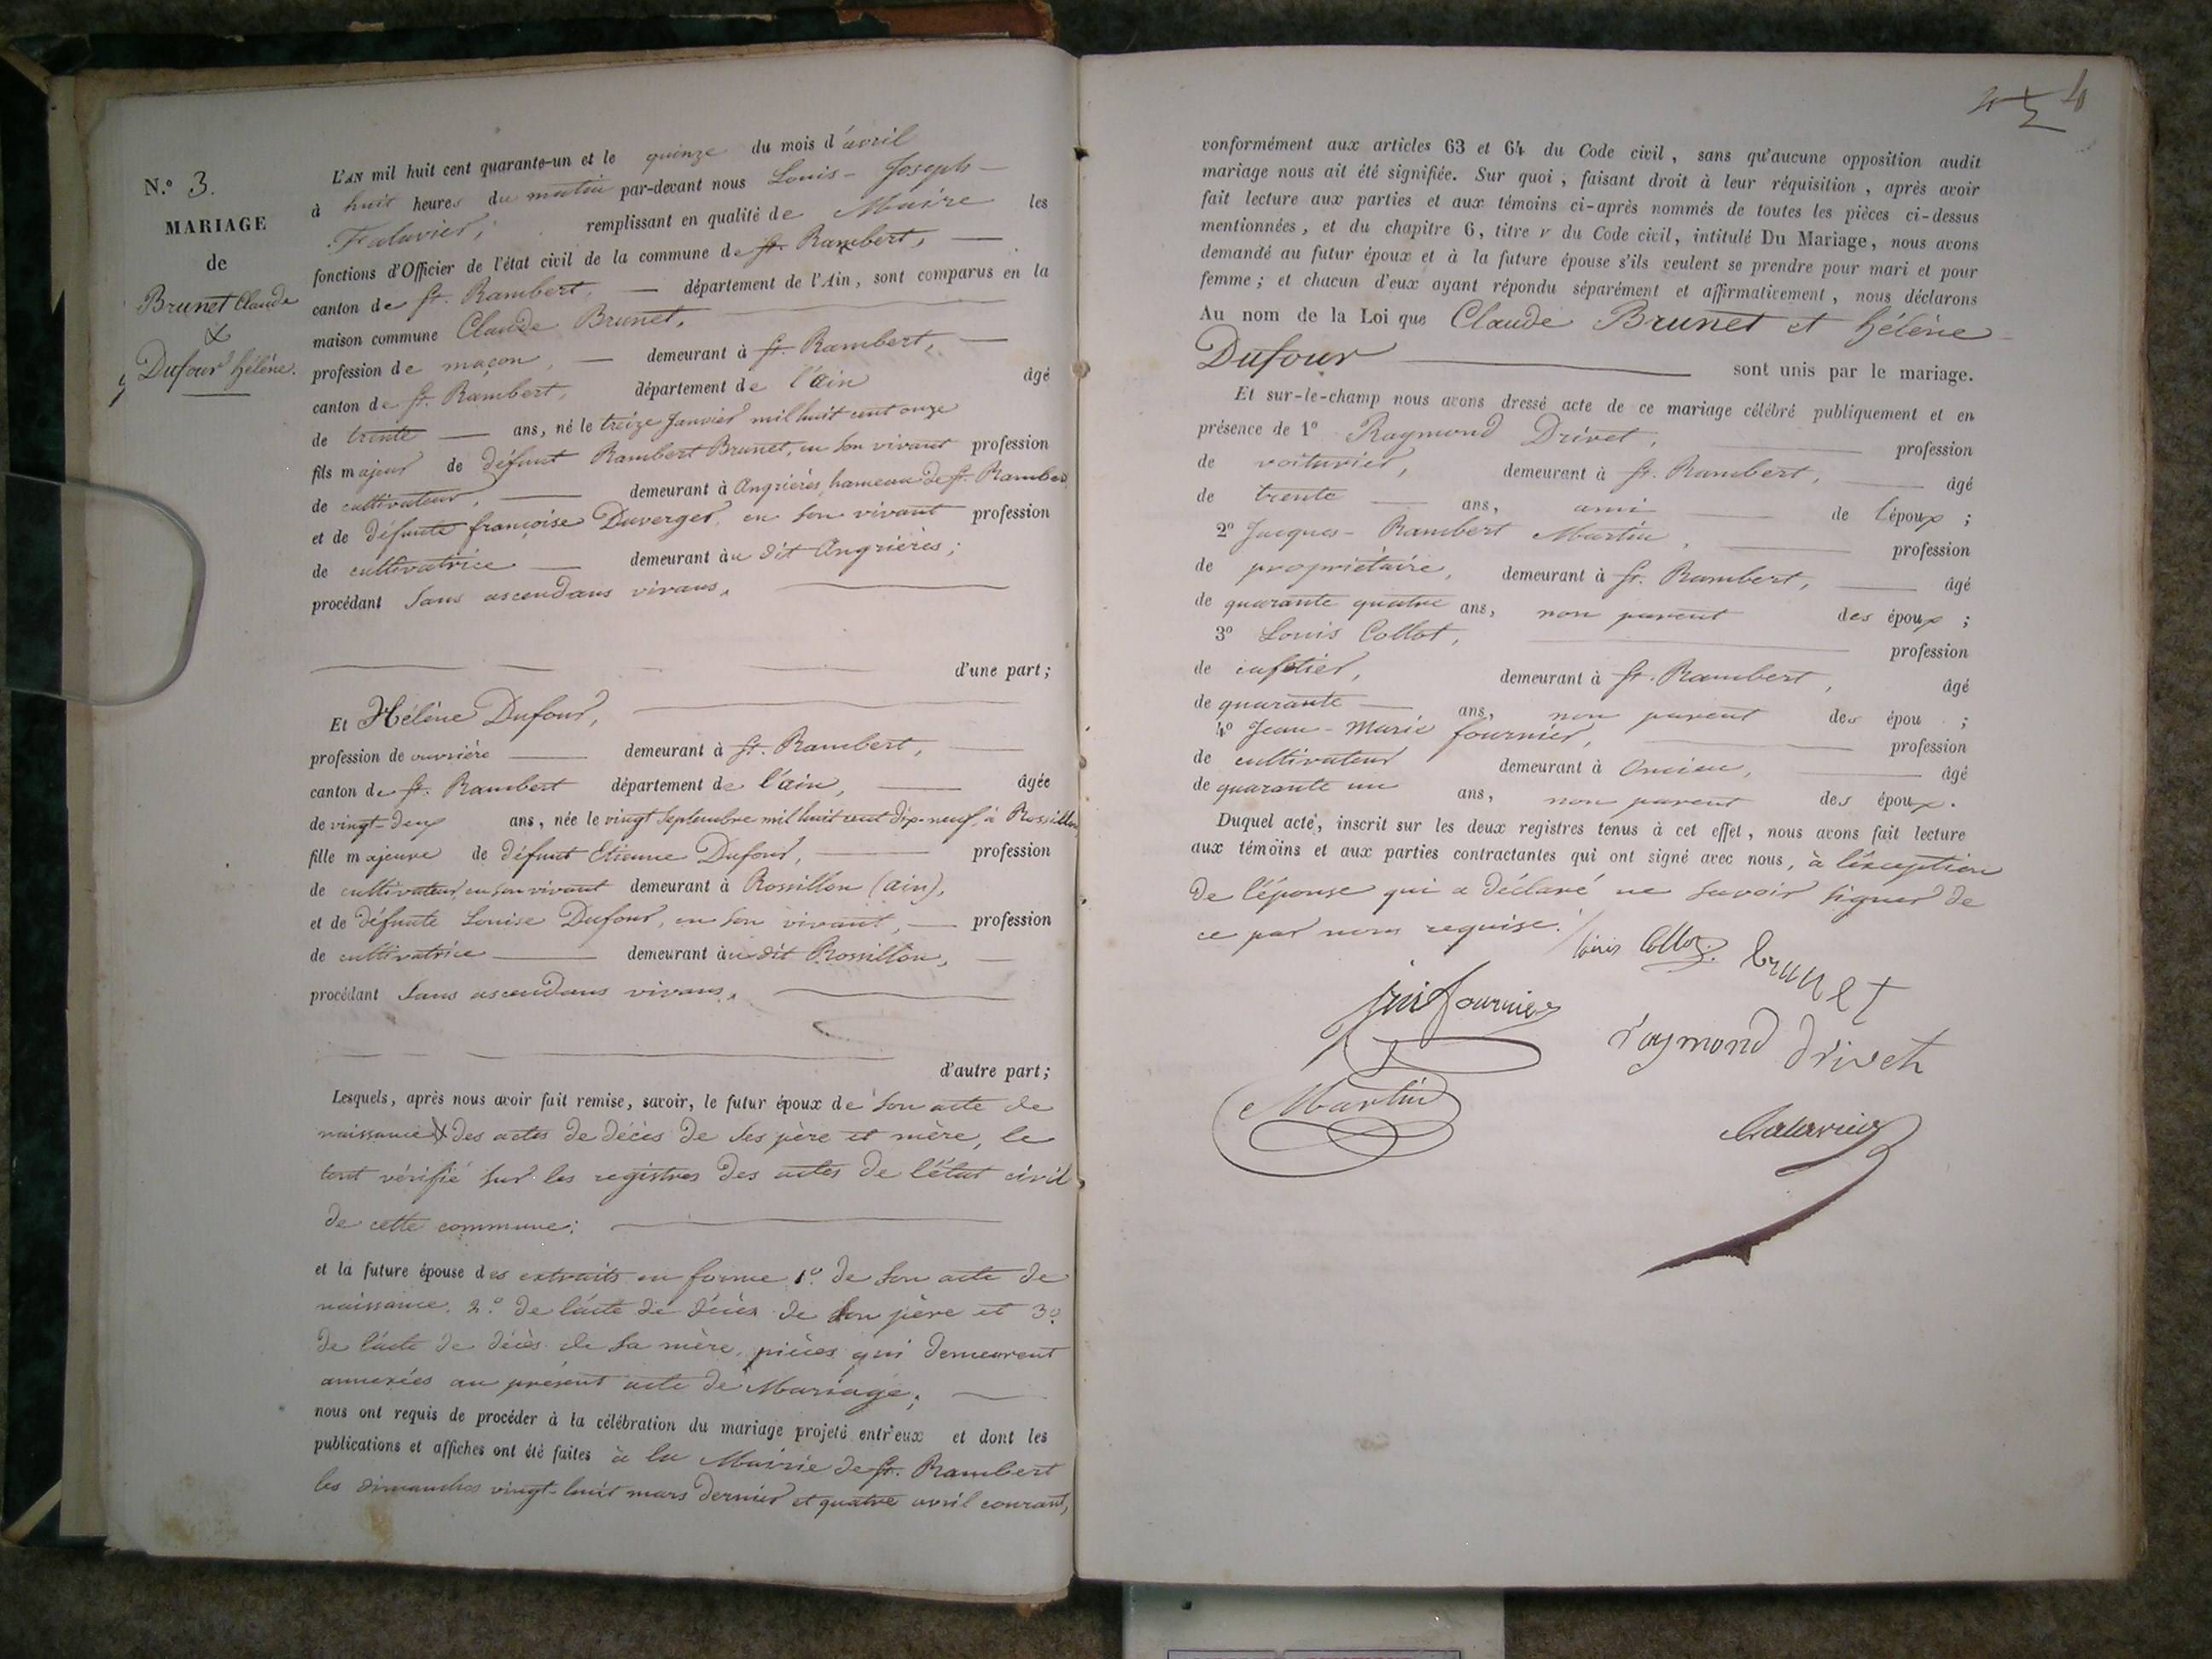 N.º 3.
MARIAGE
de
Brunet Claude
&
Dufour hélène.
L'AN mil huit cent quarante-un et le quinze du mois d'avril
à huit heures du matin par-devant nous Louis-Joseph-
remplissant en qualité de Maire les
fonctions d'Officier de l'état civil de la commune de St. Rambert,
canton de St. Rambert, département de l'Ain, sont comparus en la
maison commune Claude Brunet,
profession de maçon, demeurant à St. Rambert,
canton de St. Rambert, département de l'ain âgé
de trente ans, né le treize Janvier mil huit cent onze
fils majeur de défunt Rambert Brunet, en son vivant profession
de cultivateur, demeurant à Angrières, hameau de St. Rambert
et de défunte françoise Duverger, en son vivant profession
de cultivatrice demeurant àu dit Angrières;
procédant sans ascendans vivans,
d'une part;
Et Hélène Dufour,
profession de ouvrière demeurant à St. Rambert,
canton de St. Rambert département de l'ain, âgée
de vingt-deux ans, née le vingt Septembre mil huit cent dix-neuf, à Rossillon
fille majeure de défunt Etienne Dufour, profession
de cultivateur, en son vivant demeurant à Rossillon (ain),
et de défunte Louise Dufour, en son vivant, profession
de cultivatrice demeurant àu dit Rossillon,
procédant sans ascendans vivans,
d'autre part;
Lesquels, après nous avoir fait remise, savoir, le futur époux de son acte de
naissance & des actes de décès de ses père et mère, le
tout vérifié sur les registres des actes de l'état civil
de cette commune;
et la future épouse des extraits en forme 1º de son acte de
naissance, 2.º de l'acte de décès de son père et 3º
de l'acte de décès de sa mère, pièces qui demeurent
annexées au présent acte de Mariage;
nous ont requis de procéder à la célébration du mariage projeté entr'eux et dont les
publications et affiches ont été faites à la Mairie de St. Rambert
les dimanches vingt-huit mars dernier et quatre avril courant,
4
conformément aux articles 63 et 64 du Code civil, sans qu'aucune opposition audit
mariage nous ait été signifiée. Sur quoi, faisant droit à leur réquisition, après avoir
fait lecture aux parties et aux témoins ci-après nommés de toutes les pièces ci-dessus
mentionnées, et du chapitre 6, titre v du Code civil, intitulé Du Mariage, nous avons
demandé au futur époux et à la future épouse s'ils veulent se prendre pour mari et pour
femme; et chacun d'eux ayant répondu séparément et affirmativement, nous déclarons
Au nom de la Loi que Claude Brunet et hélène
Dufour sont unis par le mariage.
Et sur-le-champ nous avons dressé acte de ce mariage célébré publiquement et en
présence de 1º Raymond Drivet, profession
de voiturier, demeurant à St. Rambert, âgé
de trente ans, ami de l'époux;
2º Jacques-Rambert Martin, profession
de propriétaire, demeurant à St. Rambert, âgé
de quarante quatre ans, non parent des époux;
3º Louis Collot, profession
de cafetier, demeurant à St. Rambert, âgé
de quarante ans, non parent des épou ;
4º Jean-Marie fournier, profession
de cultivateur demeurant à Oncieu, âgé
de quarante un ans, non parent des époux.
Duquel acte, inscrit sur les deux registres tenus à cet effet, nous avons fait lecture
aux témoins et aux parties contractantes qui ont signé avec nous, à l'exception
de l'épouse qui a déclaré ne savoir signer de
ce par nous requise.
Louis Collot brunet
fournier
raymond drivet
Martin